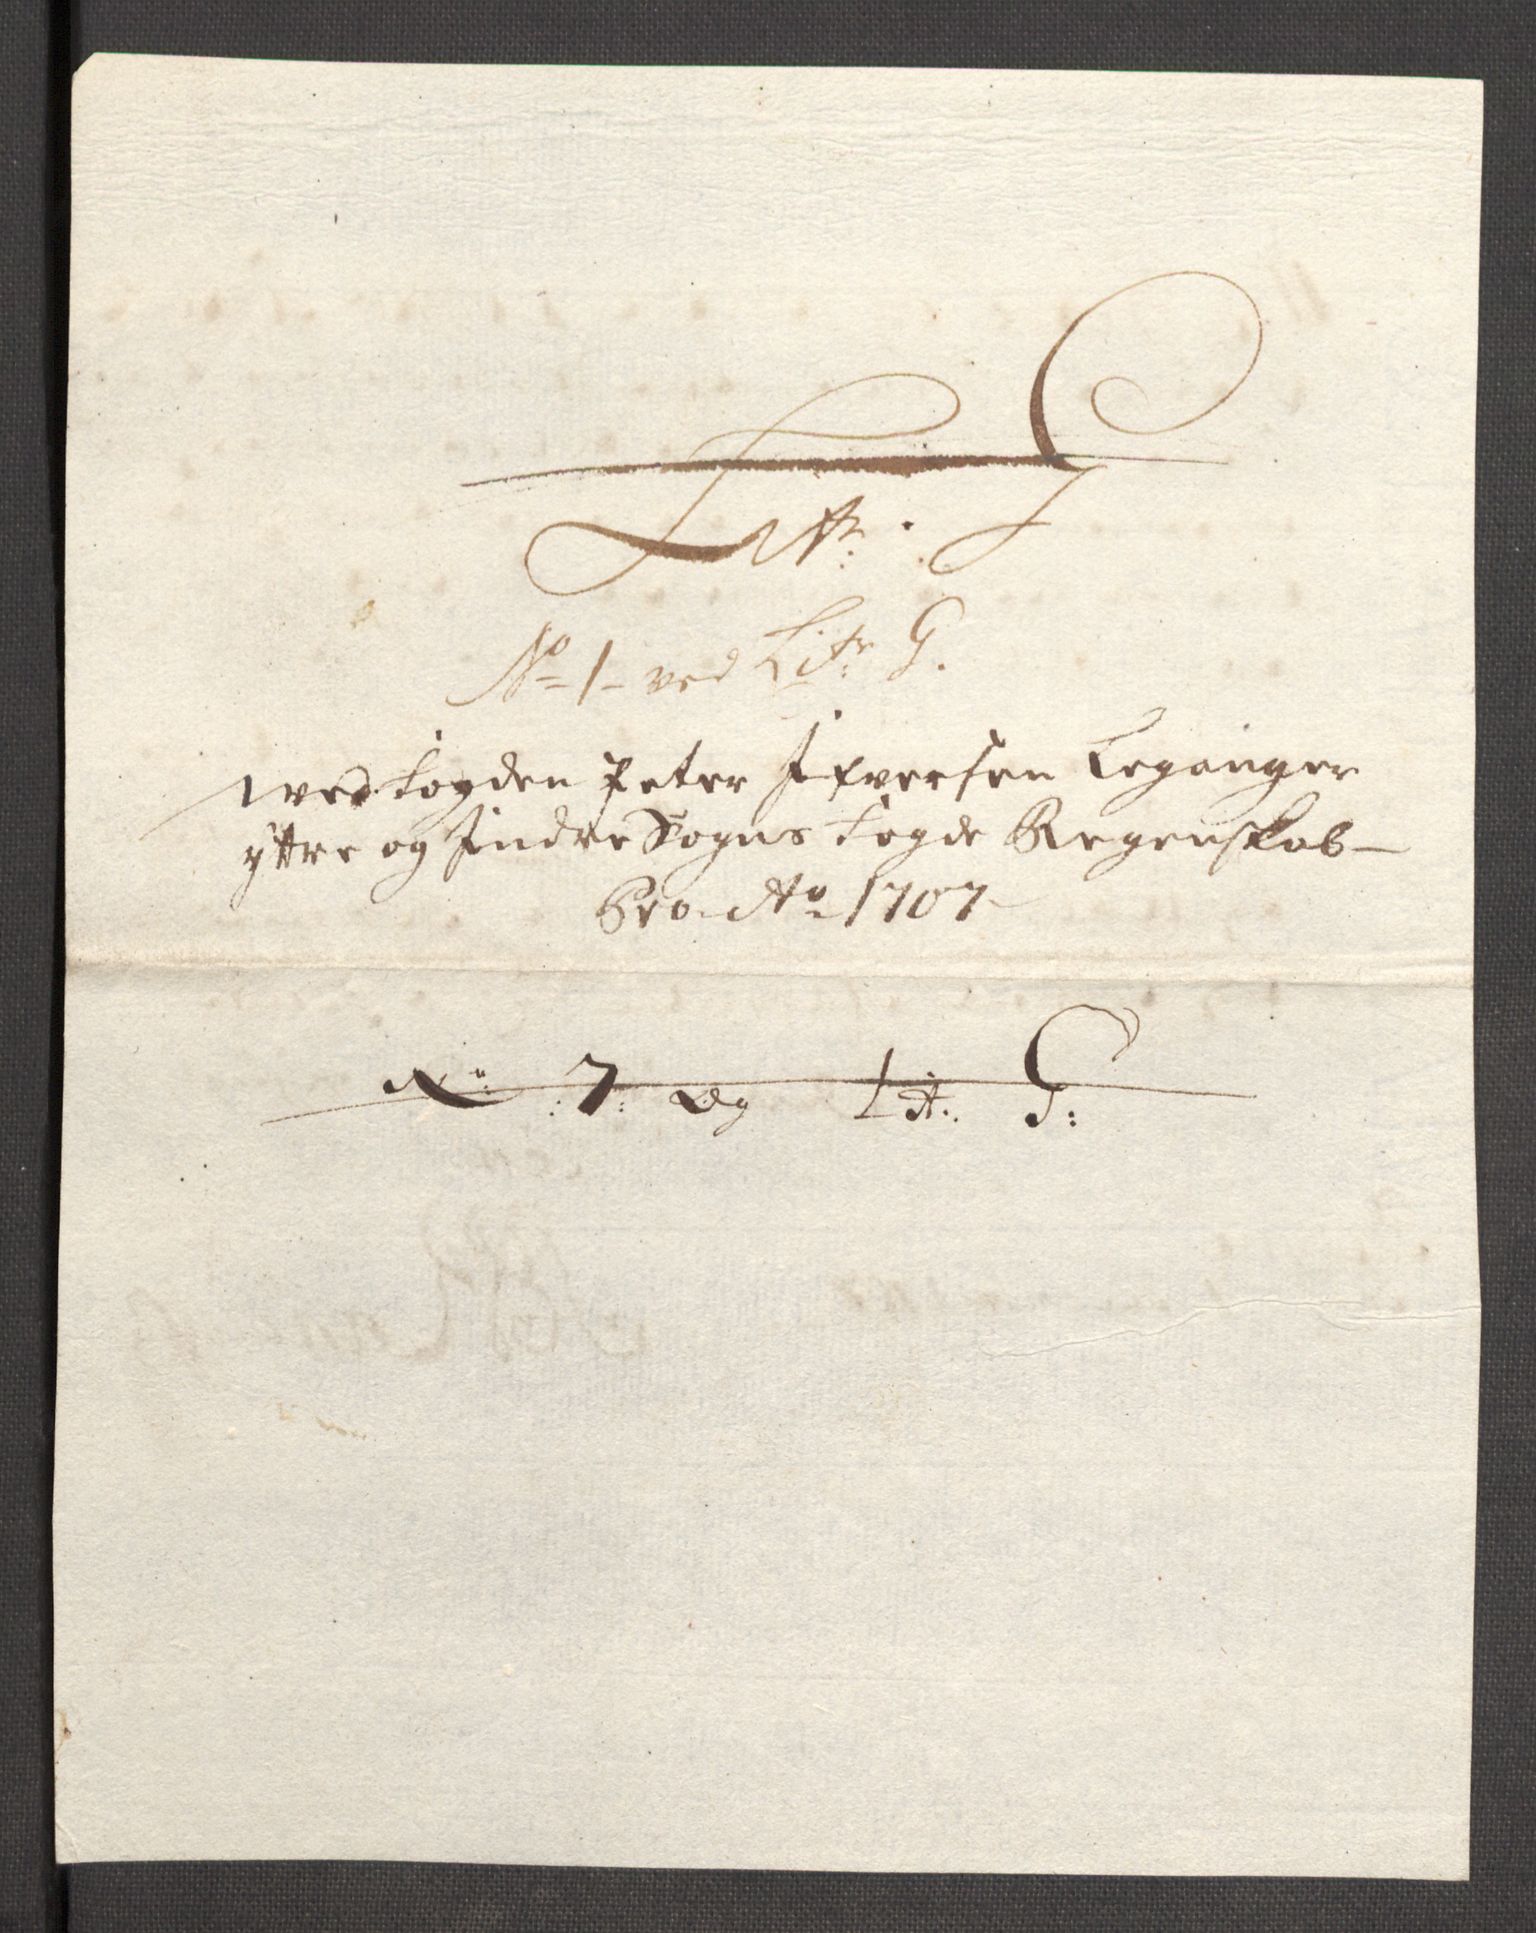 Litr: G
No 1 ved Litr G.
Wed Fogden Peter Ifversen Leganger
yttre og Indre Sogns Fogde Regenskab
Pro Ao 1707
No: 7: Og Lit: G: